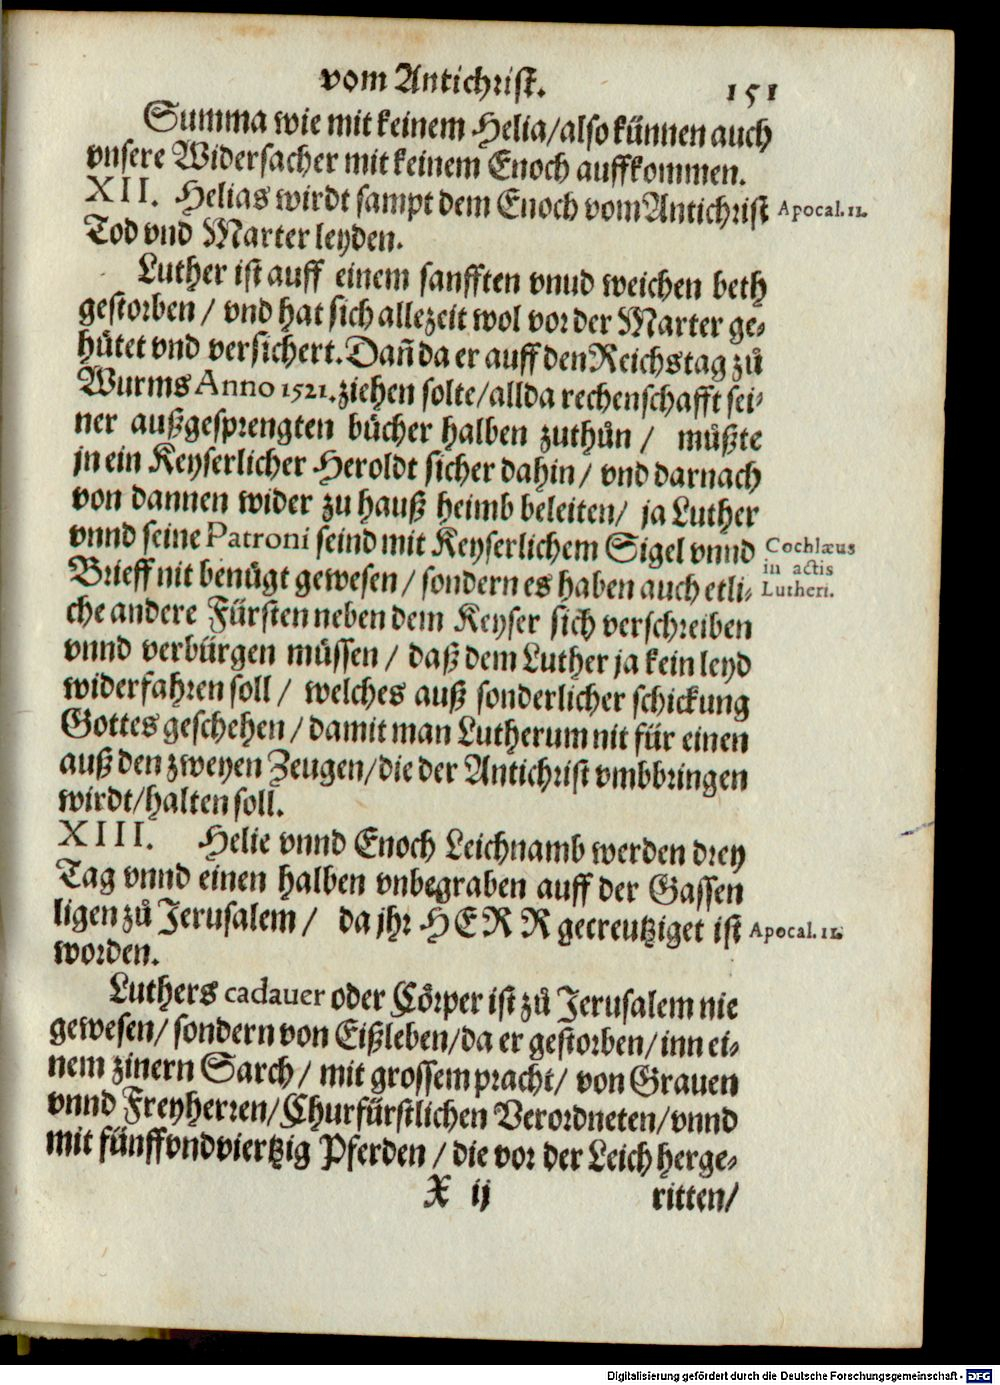 vom Antichrist. 151
Summa wie mit keinem Helia/also künnen auch
vnsere Widersacher mit keinem Enoch auffkommen.
XII. Helias wirdt sampt dem Enoch vom Antichrist Apocal. 11.
Tod vnd Marter leyden.
Luther ist auff einem sanfften vnud weichen beth
gestorben / vnd hat sich allezeit wol vor der Marter ge-
hütet vnd versichert. Dañ da er auff den Reichstag zů
Wurms Anno 1521. ziehen solte/allda rechenschafft sei-
ner außgesprengten bücher halben zuthůn / můßte
jn ein Keyserlicher Heroldt sicher dahin / vnd darnach
von dannen wider zu hauß heimb beleiten/ ja Luther
vnnd seine Patroni seind mit Keyserlichem Sigel vnnd Cochlæus
Brieff nit benügt gewesen / sondern es haben auch etli- in actis
che andere Fürsten neben dem Keyser sich verschreiben Lutheri.
vnnd verbürgen müssen / daß dem Luther ja kein leyd
widerfahren soll / welches auß sonderlicher schickung
Gottes geschehen / damit man Lutherum nit für einen
auß den zweyen Zeugen/die der Antichrist vmbbringen
wirdt/halten soll.
XIII. Helie vnnd Enoch Leichnamb werden drey
Tag vnnd einen halben vnbegraben auff der Gassen
ligen zů Jerusalem / da jhr HERR gecreutziget ist Apocal. 11.
worden.
Luthers cadauer oder Cörper ist zů Jerusalem nie
gewesen/ sondern von Eißleben/da er gestorben/inn ei-
nem zinern Sarch / mit grossem pracht/ von Grauen
vnnd Freyherren/Churfürstlichen Verordneten/vnnd
mit fünffvndviertzig Pferden / die vor der Leich herge-
X ij ritten/
Digitalisierung gefördert durch die Deutsche Forschungsgemeinschaft - DFG